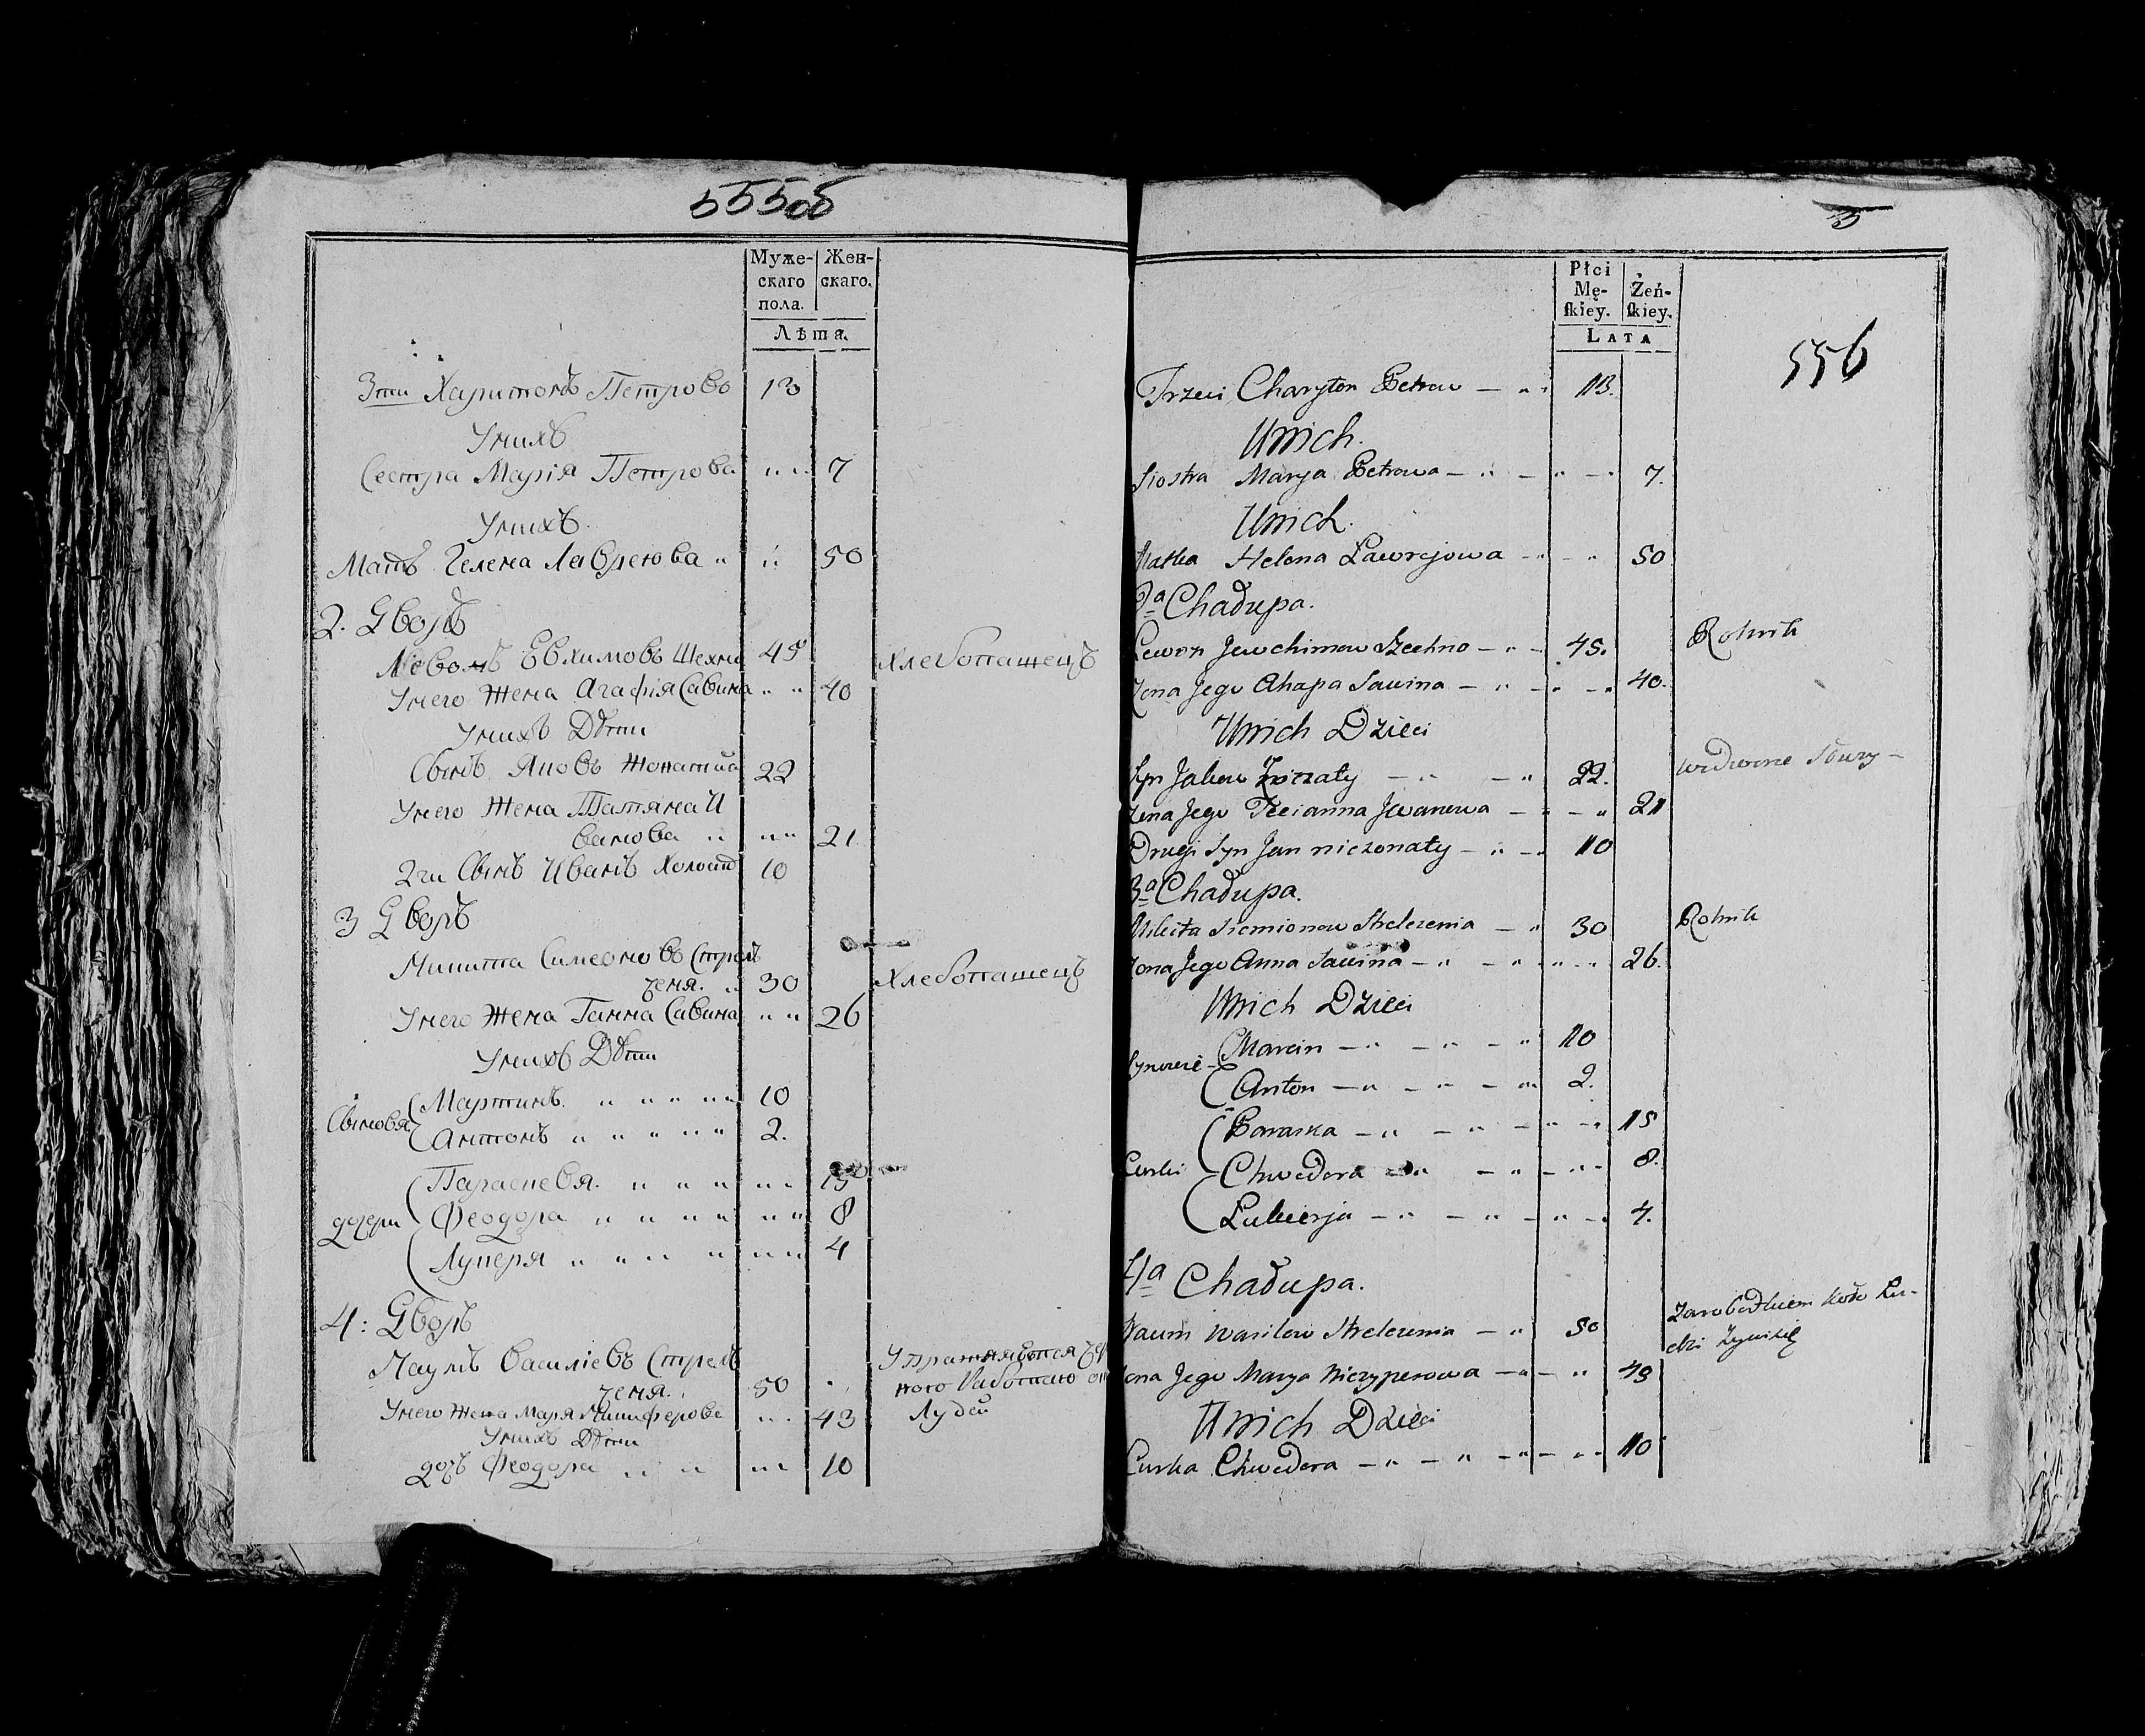 555об
Муже- Жен-
скаго скаго.
пола.
Лѣта.
3тии Харитонъ Петровъ 13
Унихъ
Сестра Марія Петрова „ „ 7
Унихъ.
Мать Гелена Лавреюва „ „ 50
2. Дворъ
Левонъ Евхимовъ Шехно 45 Хлебопашецъ
Унего Жена Агафія Савина „ „ 40
Унихъ Дѣти
Сынъ Яковъ Жонатий 22
Унего Жена Татяна И
ванова „ „ „ 21
2ги Сынъ Иванъ Холост 10
3 Дворъ
Микита Симеоновъ Стрель
ченя. „ 30 Хлебопашецъ
Унего Жена Ганна Савина „ „ 26
Унихъ Дѣти
Мартинъ. „ „ „ „ „ 10
Сыновя
Антонъ „ „ „ „ „ 2.
Параскевя. „ „ „ „ „ 15
дочери Феодора „ „ „ „ „ „ 8
Лукеря „ „ „ „ „ „ 4
4: Дворъ
Наумъ Василіевъ Стрель
ченя. 50
Унего Жена Маря Никиферова „ „ 43 Лудей
Унихъ Дѣти
дочь Феодора „ „ „ „ 10
3
Płci
Mę- Żeń-
ſkiey. ſkiey.
LATA
556
Trzeci Charyton Petrow — „ 13.
Unich.
Siostra Marya Petrowa — „ — „ — 7.
Unich.
Matka Helena Ławrejowa — „ — „ 50
2a Chałupa.
Lewon Jewchimow Szechno — „ — 45. Rolnik
Żona Jego Ahapa Sawina — „ — „ — „ 40.
Unich Dzieci
Syn Jakow Żonaty — „ — „ 22.
Żona Jego Tecianna Jwanowa — „ — „ 21
Drugi Syn Jan nieżonaty — „ — 10
3a Chałupa.
Mikita Siemionow Strelczenia — „ 30 Rolnik
Żona Jego Anna Sawina — „ — „ „ „ 26.
Unich Dzieci
Marcin — „ — „ — „ 10
Synowie
Anton — „ — „ — „ 2.
Paraska — „ — „ — „ — „ 15
Curki Chwedora — „ — „ — „ — 8.
Łukierja — „ — „ — „ — 4.
4a Chałupa.
Naum Wasilew Strelczenia — „ 50 Zarobedkiem koło Lu-
dzi żywi się
Żona Jego Marya Niczyperowa — „ — „ 43
Unich Dzieci
Curka Chwedora — „ — „ — „ — „ 10